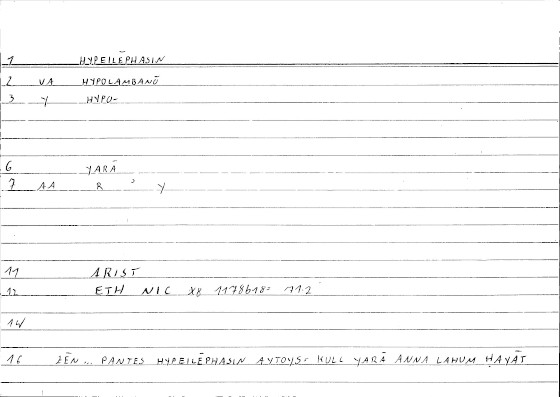 1 HYPEILĒPHASIN
2 VA HYPOLAMBANŌ
3 Y HYPO-
6 YARĀ
7 AA R ʾ Y
11 ARIST
12 ETH NIC X8 1178b18= 11.2
14
16 ZĒN... PANTES HYPEILĒPHASIN AYTOYS= KULL YARĀ ANNA LAHUM ḤAYĀT